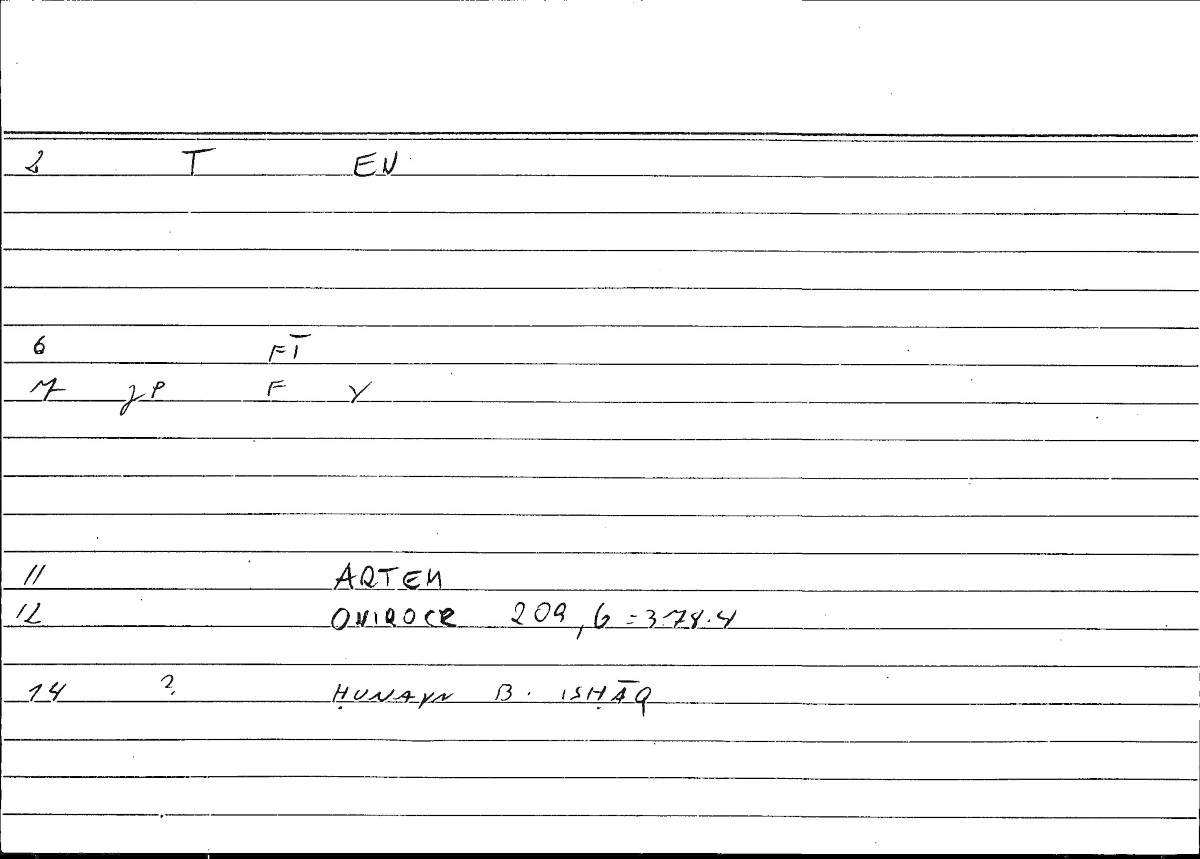 2 T EN
6 FĪ
F Y
11 ARTEM
12 ONIROCR 209,6=378.4
14 ? ḤUNAYN B. ISḤĀQ